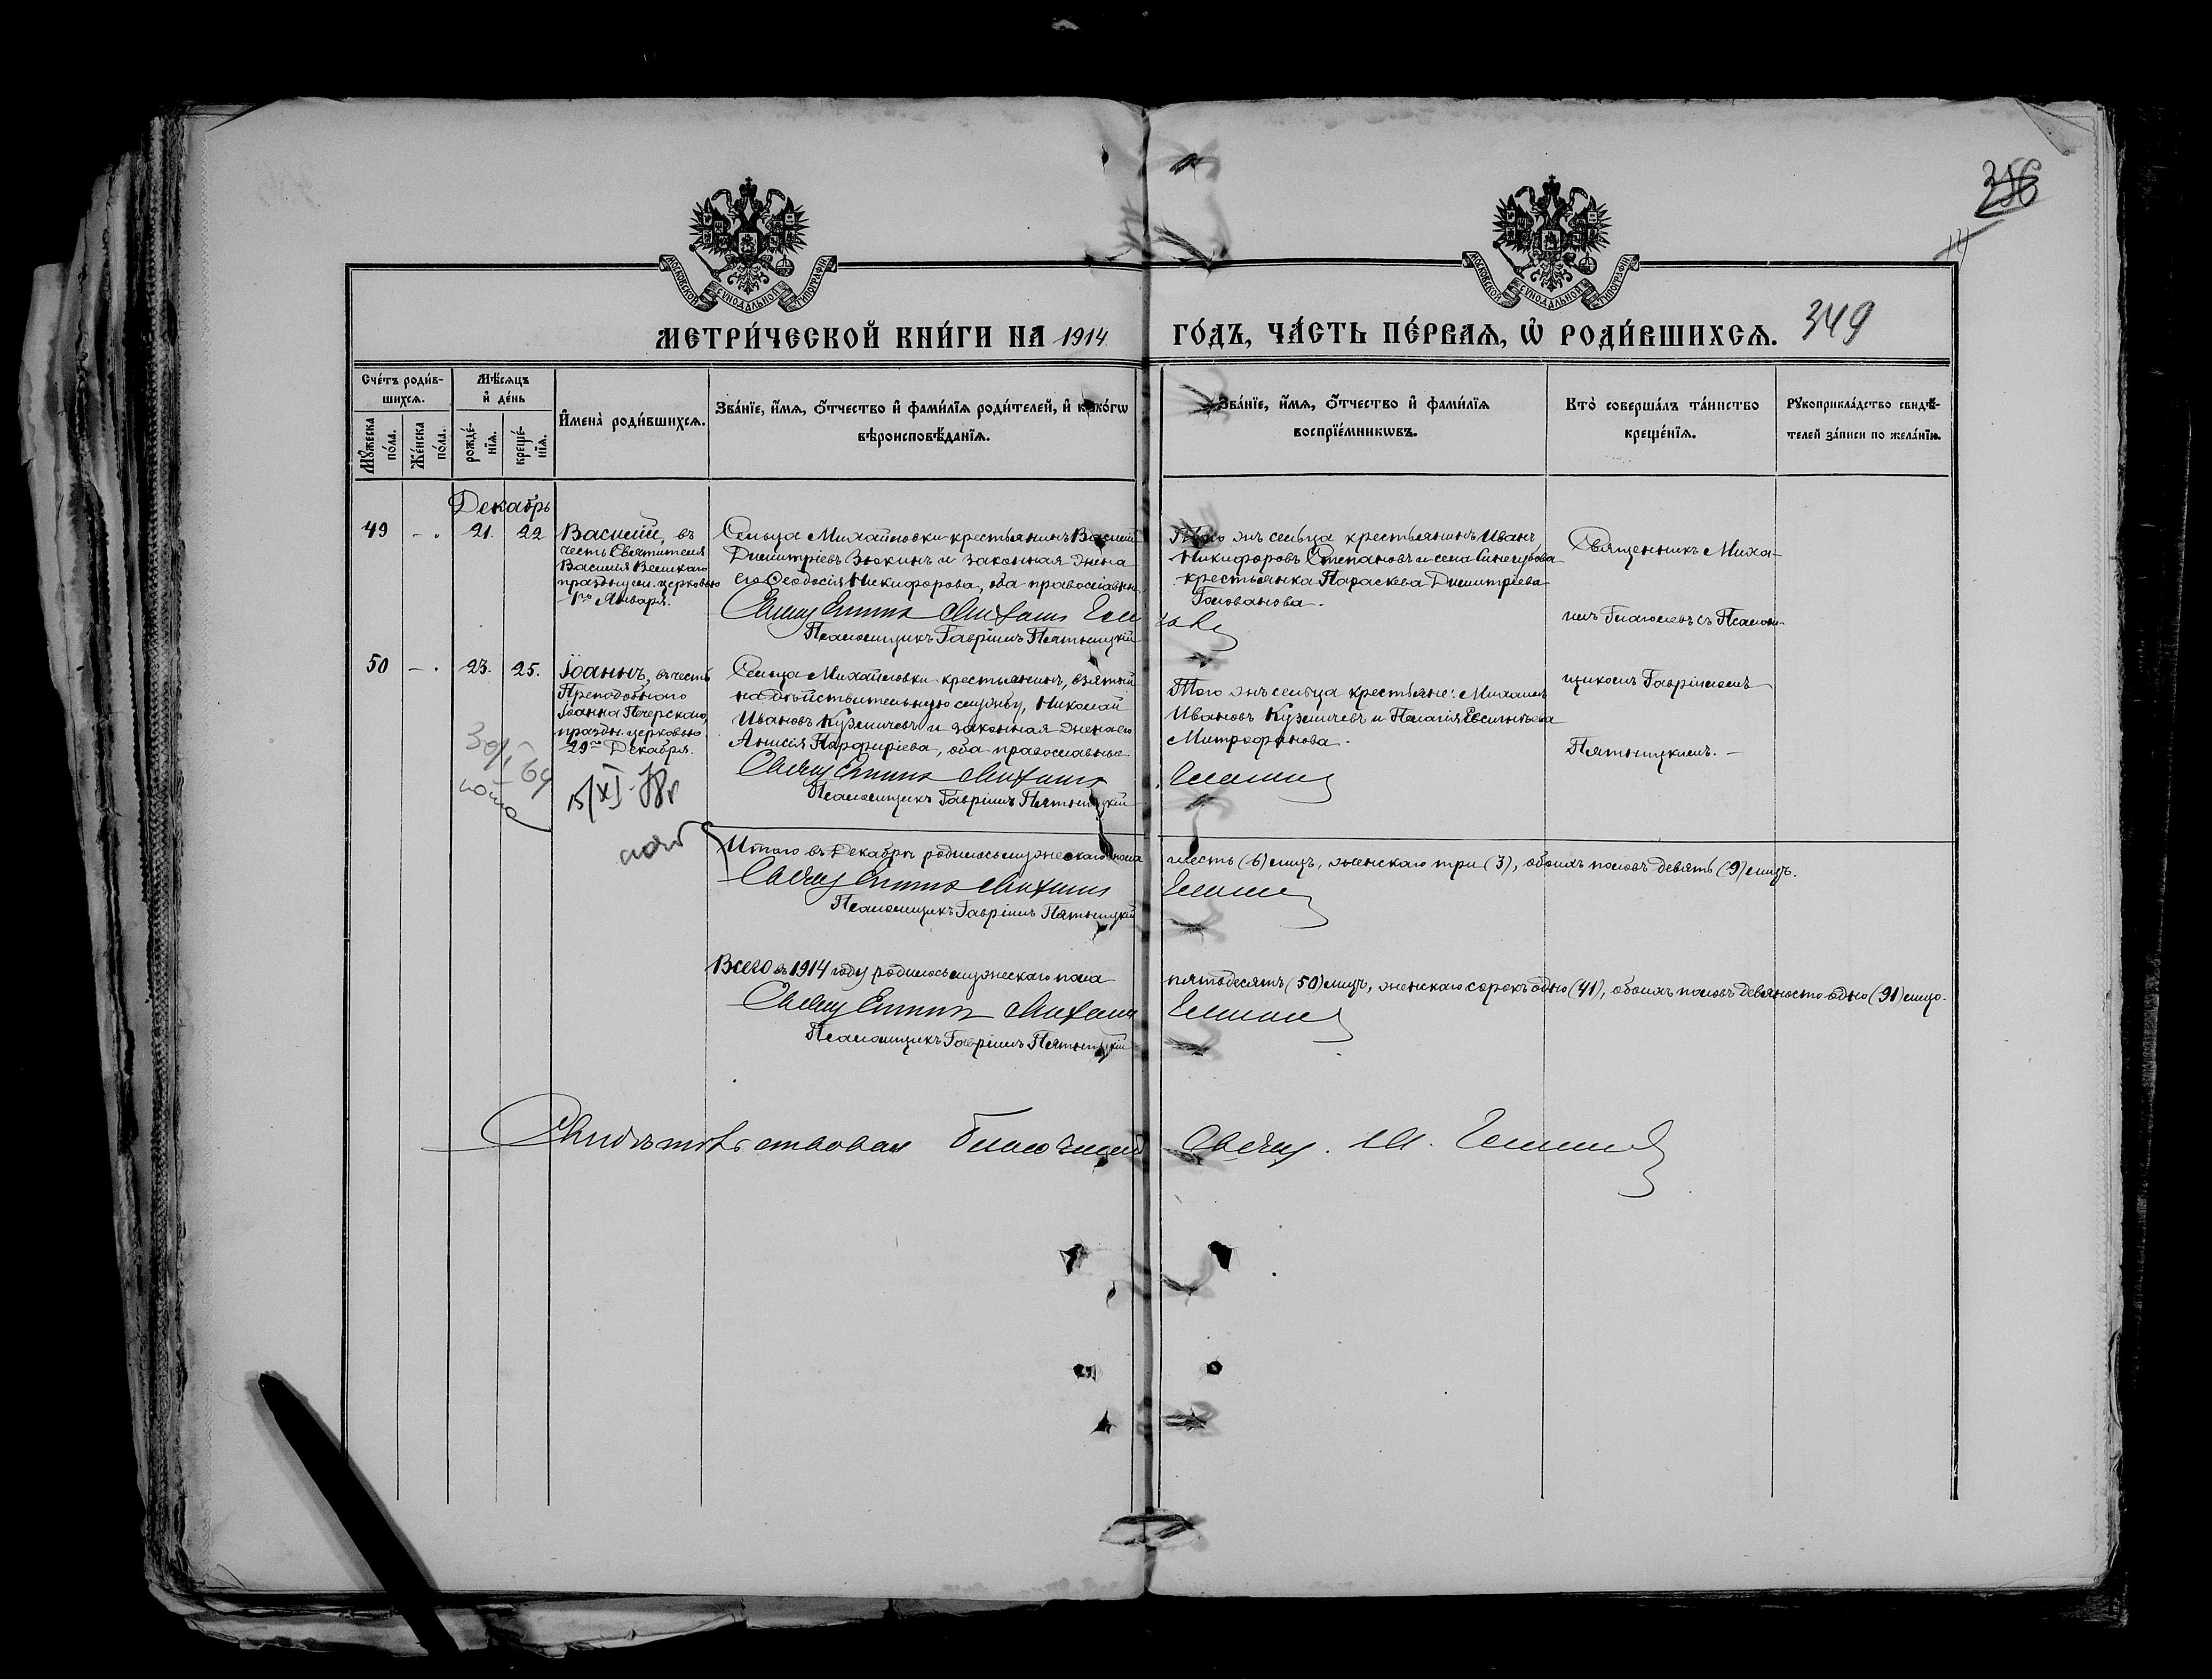 356
МОСКОВСКОЙ СУНОДАЛЬНОЙ ТИПОГРАФІИ
МОСКОВСКОЙ СУНОДАЛЬНОЙ ТИПОГРАФІИ
МЕТРИ́ЧЕСКОЙ КНИ́ГИ НА 1914 ГО́ДЪ, ЧА́СТЬ ПЕ́РВАѦ, Ѡ҆ РОДИ́ВШИХСѦ. 349
Сче́тъ роди́в-
шихсѧ.
Мꙋ́жеска по́ла.
Же́нска по́ла.
Мѣ́сѧцъ
и҆ де́нь
рожде́-
нїѧ.
креще́-
нїѧ.
И҆мена̀ роди́вшихсѧ.
Зва́нїе, и҆́мѧ, ѻ҆́тчество и҆ фами́лїѧ роди́телей, и҆ како́гѡ
вѣроисповѣ́данїѧ.
Зва́нїе, и҆́мѧ, ѻ҆́тчество и҆ фами́лїѧ
воспрїе́мникѡвъ.
Кто̀ соверша́лъ та́инство
креще́нїѧ.
Рꙋкоприкла́дство свидѣ́-
телей за́писи по жела́нїю.
Декабрь
49 - . 21. 22
Василій, въ
честь Святителя
Василія Великаго
празднуем. церковью
1го Января.
Сельца Михайловки крестьянинъ Василій
Димитріевъ Зюкинъ и законная жена
его Ѳеодосія Никифорова, оба православные.
Священникъ Михаилъ
Псаломщикъ Гавріилъ Пятницкій
Того жъ сельца крестьянинъ Иванъ
Никифоровъ Степановъ и села Синегубова
крестьянка Параскева Димитріева
Голованова.
Священникъ Миха-
илъ Глаголевъ съ Псалом-
щикомъ Гавріиломъ
Пятницкимъ. -
50 - . 23. 25.
Іоаннъ, въ честь
Преподобнаго
Іоанна Печерскаго,
праздн. церковью
29го Декабря.
Сельца Михайловки крестьянинъ, взятый
на дѣйствительную службу, Николай
Ивановъ Кузмичевъ и законная жена его
Анисія Парфиріева, оба православные
Священникъ Михаилъ
Псаломщикъ Гавріилъ Пятницкій
Того жъ сельца крестьяне: Михаилъ
Ивановъ Кузмичевъ и Пелагія Евсигнѣева
Митрофанова.
Итого въ Декабрѣ родилось мужескаго пола шесть (6) лицъ, женскаго три (3), обоихъ половъ девять (9) лицъ.
Священникъ Михаилъ
Псаломщикъ Гавріилъ Пятницкій
Всего въ 1914 году родилось мужескаго пола пятьдесятъ (50) лицъ, женскаго сорокъ одно (41), обоихъ половъ девяносто одно (91) лицо.
Священникъ Михаилъ
Псаломщикъ Гавріилъ Пятницкій
Свидѣтельствовалъ Благочинный Священ. М.